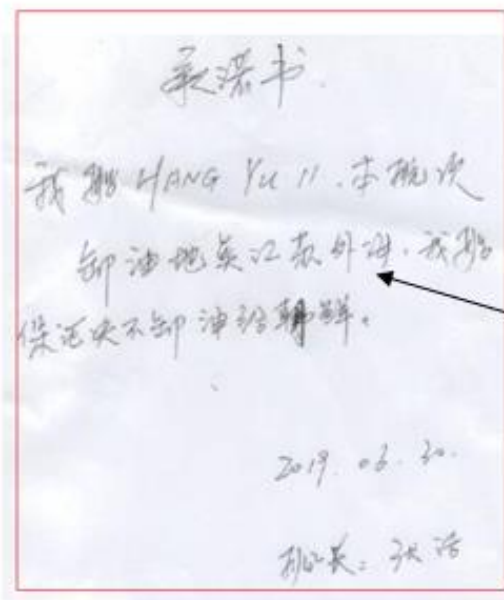 承诺书.
我船 HANG YU 11. 本航次
卸油地点江苏外港. 我船
保证决不卸油给朝鲜。
2019. 06. 30.
船长: